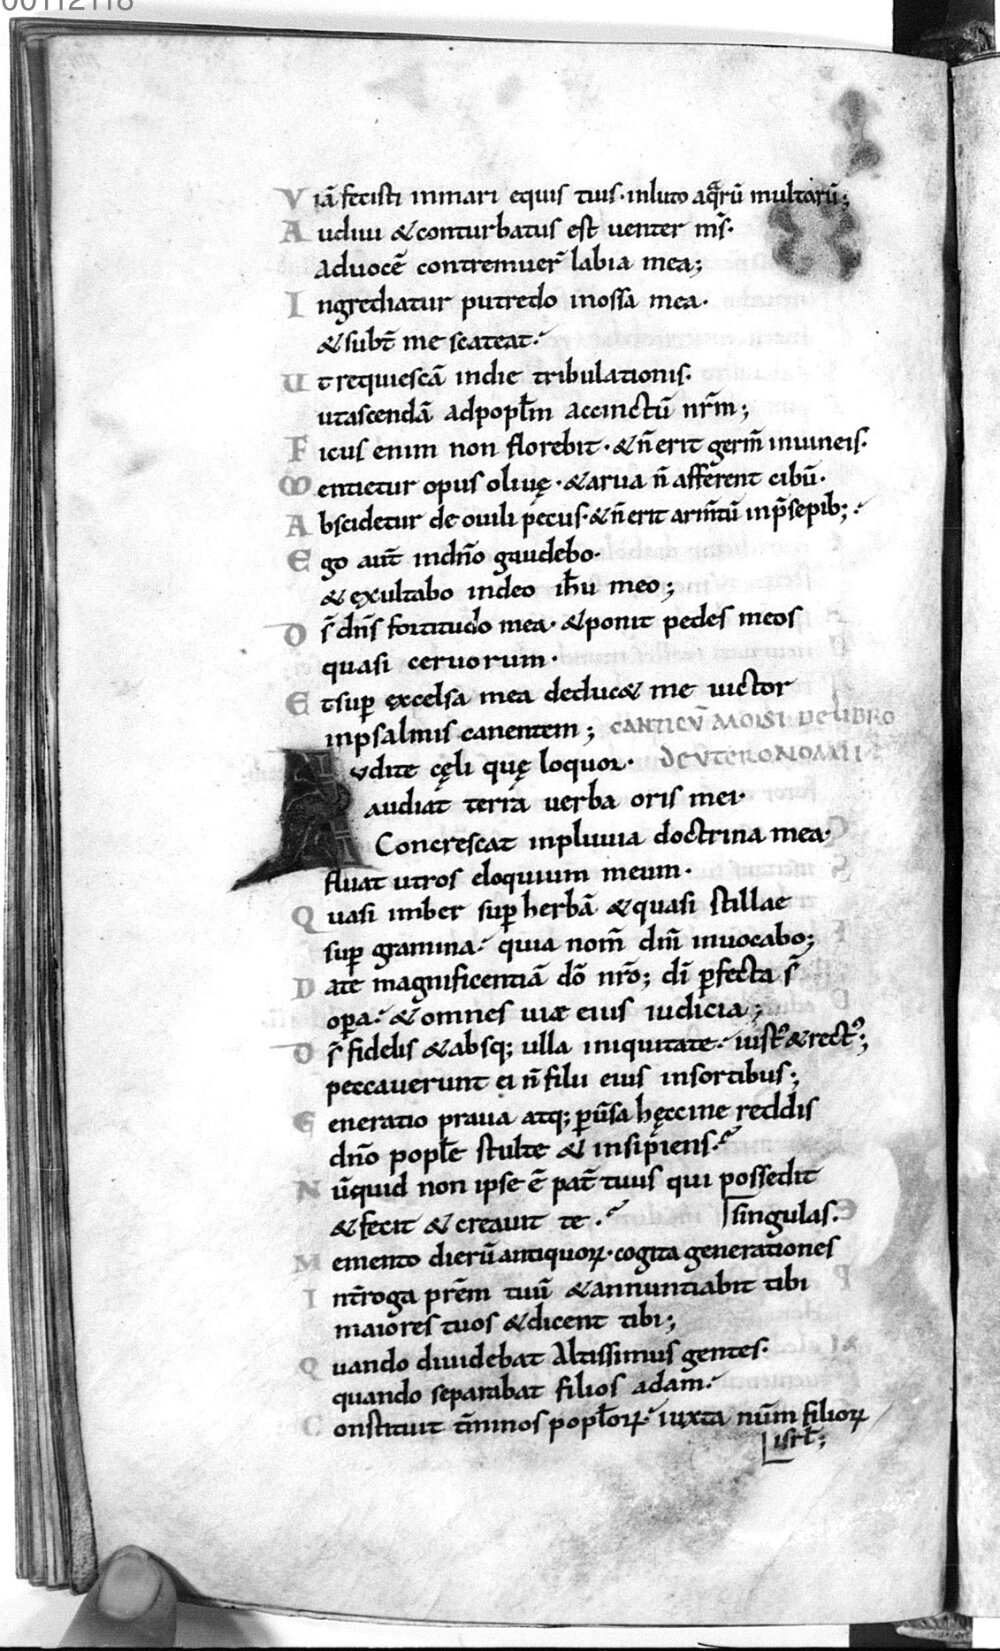 00112118
Viā fecisti inmari equis tuis · inluto aq̄rū multarū;
Audiui &conturbatus est uenter m̄s·
Aduocē contremuer̄ labia mea;
Ingrediatur putredo inossa mea·
&subt̄ me scateat·
Ut requiescā indie tribulationis·
utascendā adpopl̄m accinctū nr̄m;
Ficus enim non florebit · &n̄ erit germ̄ inuineis·
Mentietur opus oliuę · &arua n̄ afferent cibū·
Abscidetur de ouili pecus · &n̄ erit arm̄tū inp̄sepib;
Ego aut̄ indn̄o gaudebo·
&exultabo indeo ih̄u meo;
Ds̄ dn̄s fortitudo mea · &ponit pedes meos
quasi ceruorum·
Etsuꝑ excelsa mea deduc& me uictor
inpsalmis canentem; CANTICV̄ MOISI DE LIBRO
Avdite cęli quę loquor· DEVTERONOMII
audiat terra uerba oris mei·
Concrescat inpluuia doctrina mea·
fluat utros eloquium meum·
Quasi imber suꝑ herbā &quasi stillae
suꝑ gramina · quia nom̄ dn̄i inuocabo;
Date magnificentiā dō nr̄o; dī ꝑfecta s̄
oꝑa · &omnes uiæ eius iudicia;
Ds̄ fidelis &absq; ulla iniquitate · iust᾿ &rect᾿;
peccauerunt ei n̄ filii eius insortibus;
Generatio praua atq; ꝑuersa hęccine reddis
dn̄o popl̄e stulte & insipiens·
Nūquid non ipse ē pat̄ tuus qui possedit
&fecit &creauit te · singulas·
Memento dierū antiquoꝝ · cogita generationes
Int̄roga pr̄em tuū &annuntiabit tibi
maiores tuos &dicent tibi;
Quando diuidebat Altissimus gentes·
quando separabat filios adam·
Constituit t̄minos popl̄oꝝ · iuxta num̄ filioꝝ
isrl̄;